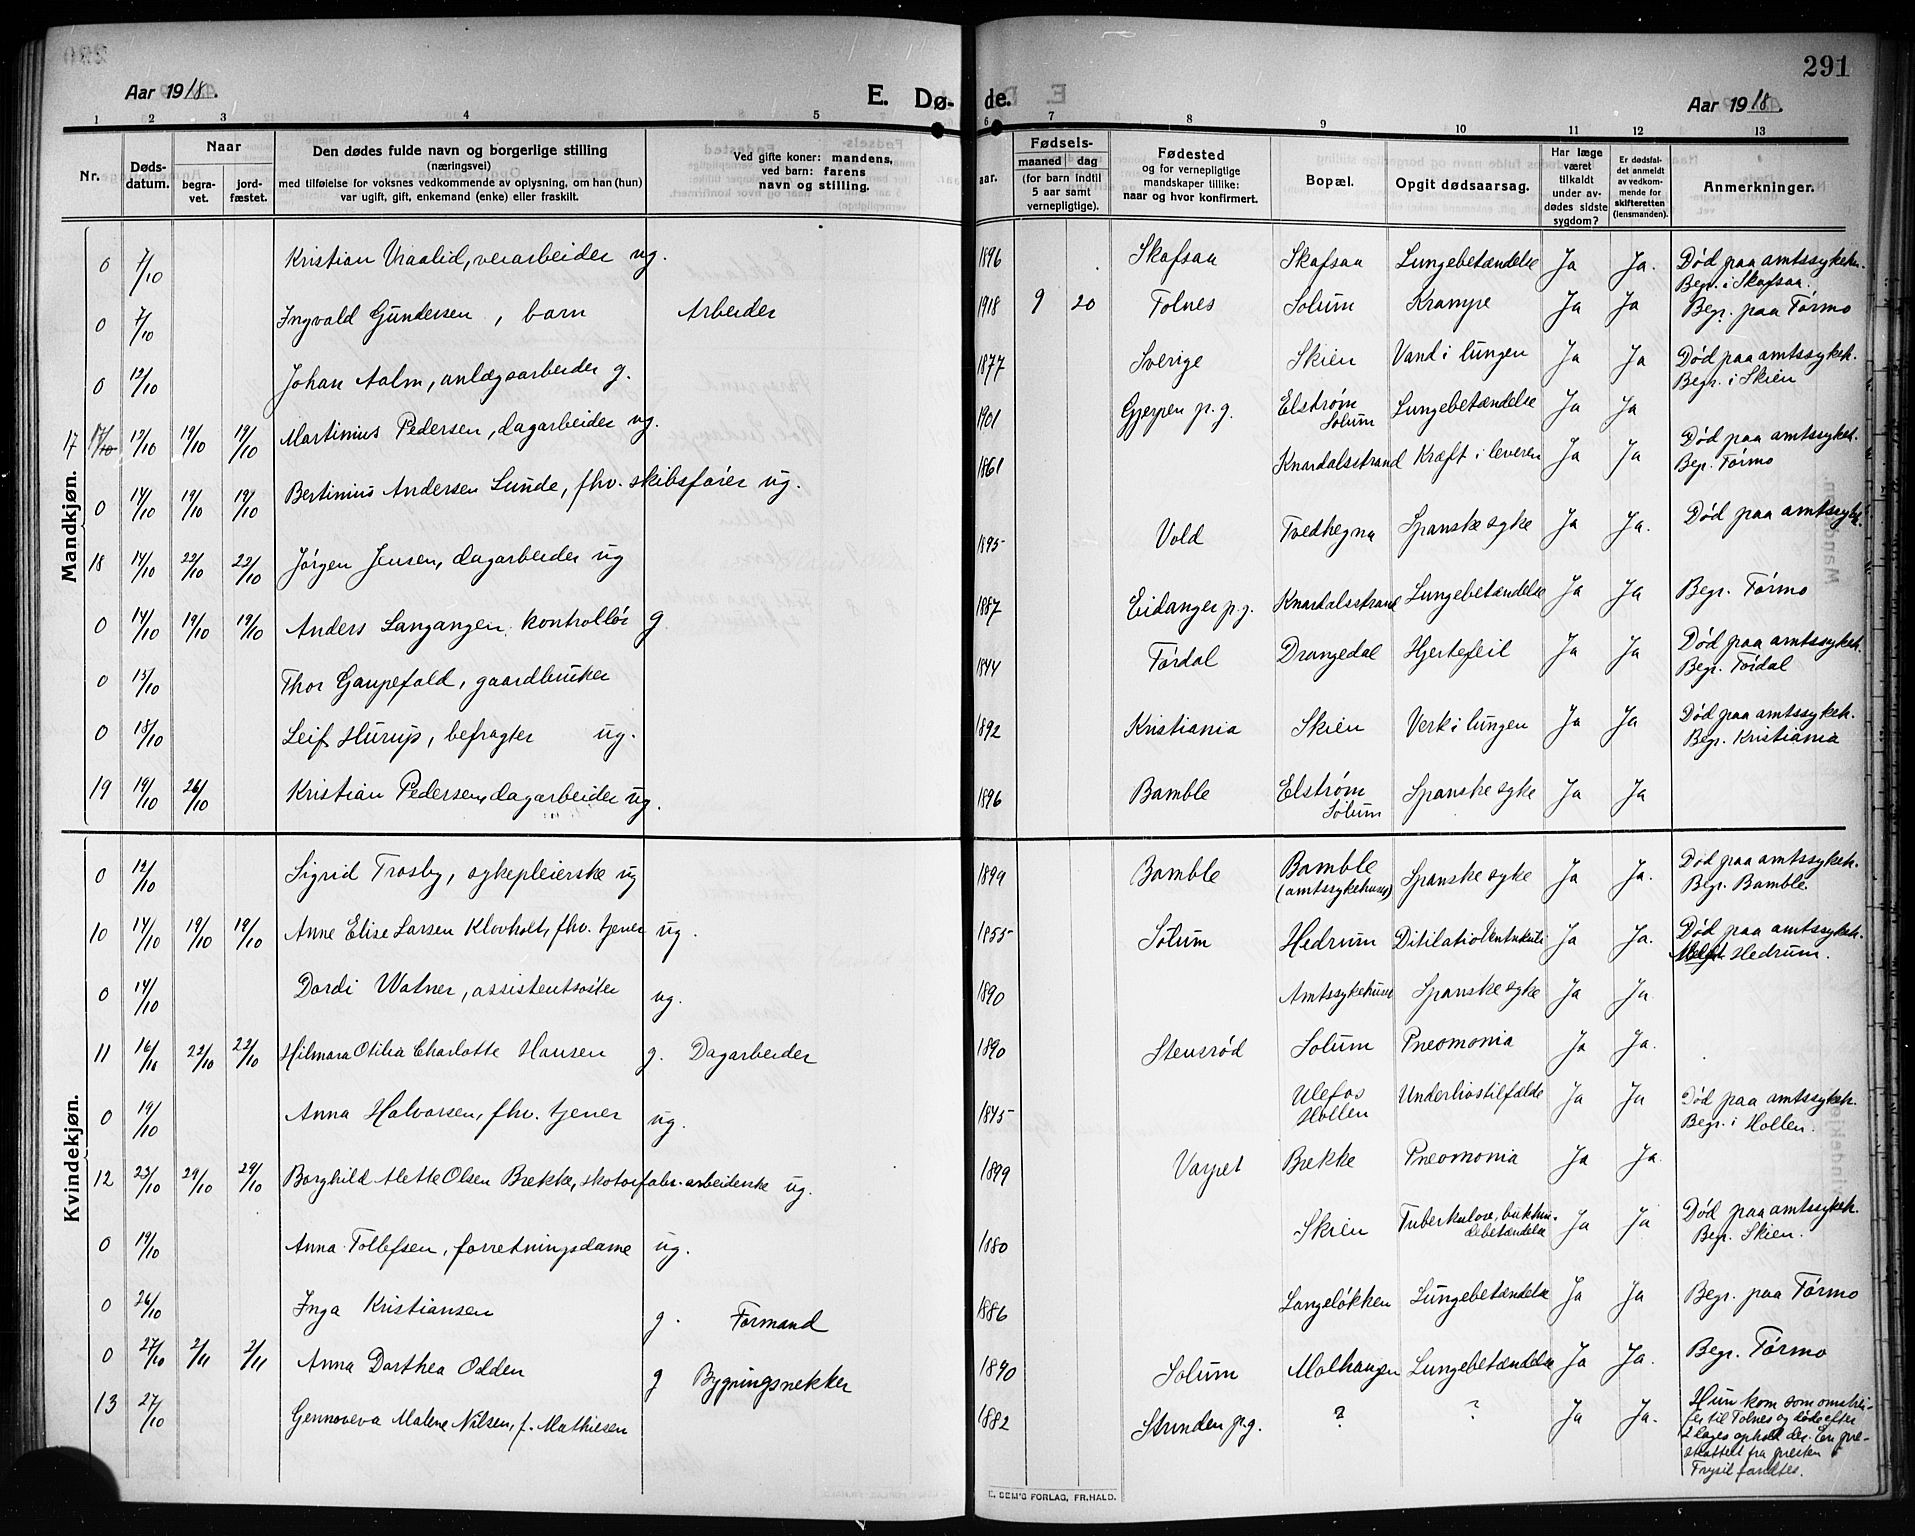 291
Aar 1918.
E. Dø- de.
Aar 1918.
1 2 3 4 5 6 7 8 9 10 11 12 13
Nr.
Døds-
datum.
Naar
begra-
vet.
jord-
fæstet.
Den dødes fulde navn og borgerlige stilling
(næringsvei)
med tilføielse for voksnes vedkommende av oplysning, om han (hun)
var ugift, gift, enkemand (enke) eller fraskilt.
Ved gifte koner: mandens,
ved barn: farens
navn og stilling.
Fødsels-
aar.
maaned dag
(for barn indtil
5 aar samt
vernepligtige).
Fødested
og for vernepligtige
mandskaper tillike:
naar og hvor konfirmert.
Bopæl.
Opgit dødsaarsag.
Har læge
været
tilkaldt
under av-
dødes sidste
sygdom?
Er dødsfal-
det anmeldt
av vedkom-
mende for
skifteretten
(lensmanden).
Anmerkninger.
Mandkjøn.
0 7/10 Kristian Vraalid, verarbeider ug. 1896 Skafsaa Skafsaa Lungebetændelse Ja Ja. Død paa amtssykeh.
Begr. i Skafsaa.
0 7/10 Ingvald Gundersen, barn Arbeider 1918 9 20 Tolnes Solum Krampe Ja Ja Begr. paa Tørmo
0 12/10 Johan Aalm, anlægsarbeider g. 1877 Sverige Skien Vand i lungen Ja Ja Død paa amtssykeh.
Begr. i Skien
17 12/10 19/10 19/10 Martinius Pedersen, dagarbeider ug. 1901 Gjerpen p.g. Elstrøm
Solum Lungebetændelse Ja Ja
0 14/10 19/10 19/10 Bertinius Andersen Lunde, fhv. skibsfører ug. 1861 Knardalsstrand Kræft i leveren Ja Ja Død paa amtssykeh.
Begr. Tørmo
18 14/10 22/10 22/10 Jørgen Jensen, dagarbeider ug 1895 Vold Tvedhegna Spanske syke Ja Ja. Død paa amtssykeh.
0 14/10 19/10 19/10 Anders Langangen, kontrollør g 1887 Eidanger p.g. Knardalsstrand Lungebetændelse Ja Ja Begr. Tørmo
0 15/10 Thor Gaupefald, gaardbruker 1844 Tørdal Drangedal Hjertefeil Ja Ja Død paa amtssykeh.
Begr. Tørdal
0 18/10 Leif Hurup, befragter ug. 1892 Kristiania Skien Verk i lungen Ja Ja Død paa amtssykeh.
Begr. Kristiania
19 19/10 26/10 Kristian Pedersen, dagarbeider ug. 1896 Bamble Elstrøm
Solum Spanske syke Ja Ja
Kvindekjøn.
0 12/10 Sigrid Trosby, sykepleierske ug 1899 Bamble Bamble
(amtssykehuset) Spanske syke Ja Ja. Død paa amtssykeh.
Begr. Bamble.
10 14/10 19/10 19/10 Anne Elise Larsen Klovholt, fhv. tjener ug. 1855 Solum Hedrum Ja Ja. Død paa amtssykeh.
Hedrum.
0 14/10 Dordi Watner, assistentsøster ug. 1890 Amtssykehuset Spanske syke Ja Ja.
11 16/10 22/10 22/10 Hilmara Otilia Charlotte Hansen g. Dagarbeider 1890 Stensrød Solum Pneomonia Ja Ja.
0 19/10 Anna Halvorsen, fhv. tjener ug. 1845 Ulefos
Hollen Underlivstilfælde Ja Ja Død paa amtssykeh.
Begr. i Hollen.
12 23/10 29/10 29/10 Borghild Alette Olsen Brekke, skotøifabr.arbeiderske ug. 1899 Varpet Brekke Pneomonia Ja Ja.
0 19/10 Anna Tollefsen, forretningsdame ug. 1880 Skien Tuberkuløse, bukhin-
debetændels Ja Ja Død paa amtssykeh.
Begr. Skien.
0 26/10 Inga Kristiansen g. Formand 1886 Langeløkken Lungebetændelse Ja Ja Begr. paa Tørmo
0 27/10 2/11 2/11 Anna Dorthea Odden g Bygningsnekker 1890 Solum Molhaugen Lungebetændelse Ja Ja. Begr. Tørmo
13 27/10 Gennoveva Malene Nilsen, f. Mathiesen 1882 Strinden p.g. ? ? Ja Ja. Hun kom som omstrei-
fer til Tolnes og døde efter
2 dages ophold der. En præ-
steattest fra presten i
Trysil fandtes.
E. SEM'S FORLAG, FR.HALD.